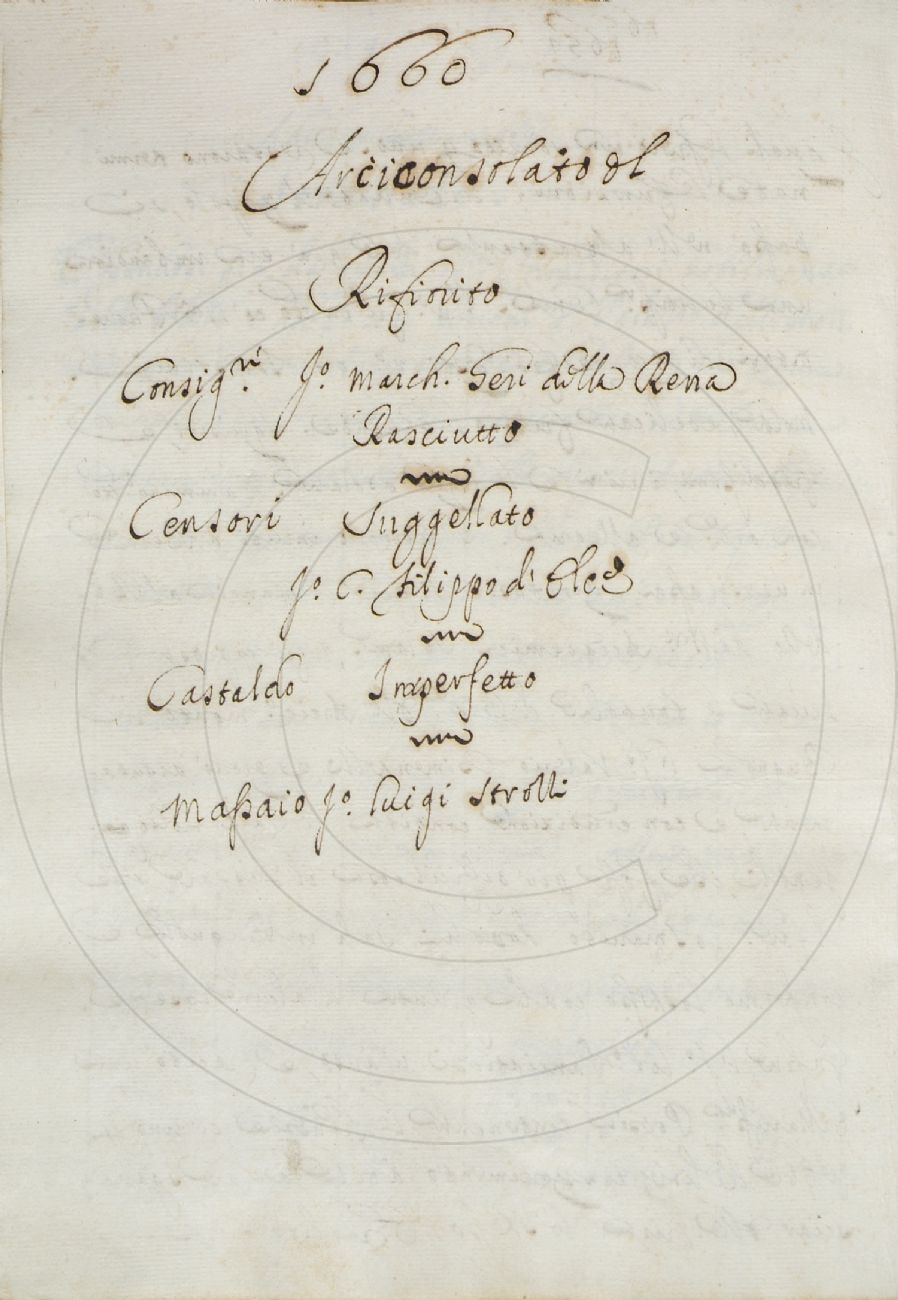 1660
Arciconsolato del
Rifiorito
Consig.ri Jo. March. Geri della Rena
Rasciutto
Censori Suggellato
Jo. C. Filippo d'Elci
Castaldo Imperfetto
Massaio Jo. Luigi Strozzi